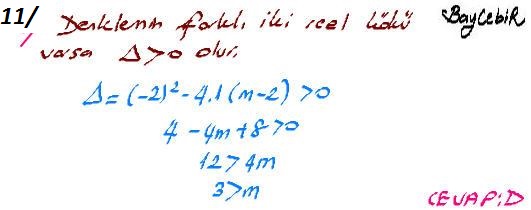 11/ Denklemin farklı iki reel kökü BayCebiR
varsa Δ>0 olur.
Δ=(-2)²-4.1(m-2)>0
4-4m+8>0
12>4m
3>m
CEVAP:D